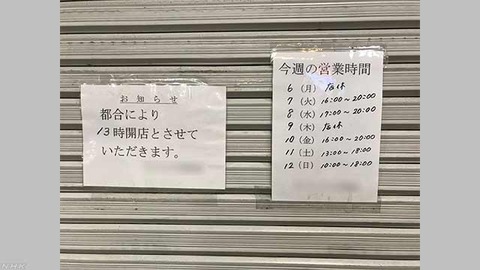 お知らせ
都合により
13時開店とさせて
いただきます。
今週の営業時間
6 (月) 店休
7 (火) 16:00~20:00
8 (水) 17:00~20:00
9 (木) 店休
10 (金) 16:00~20:00
11 (土) 13:00~18:00
12 (日) 10:00~18:00